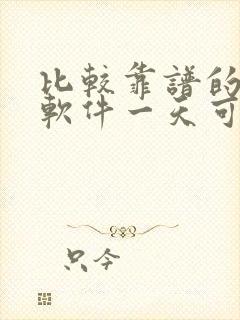 比較靠譜的
軟件一天可
只今